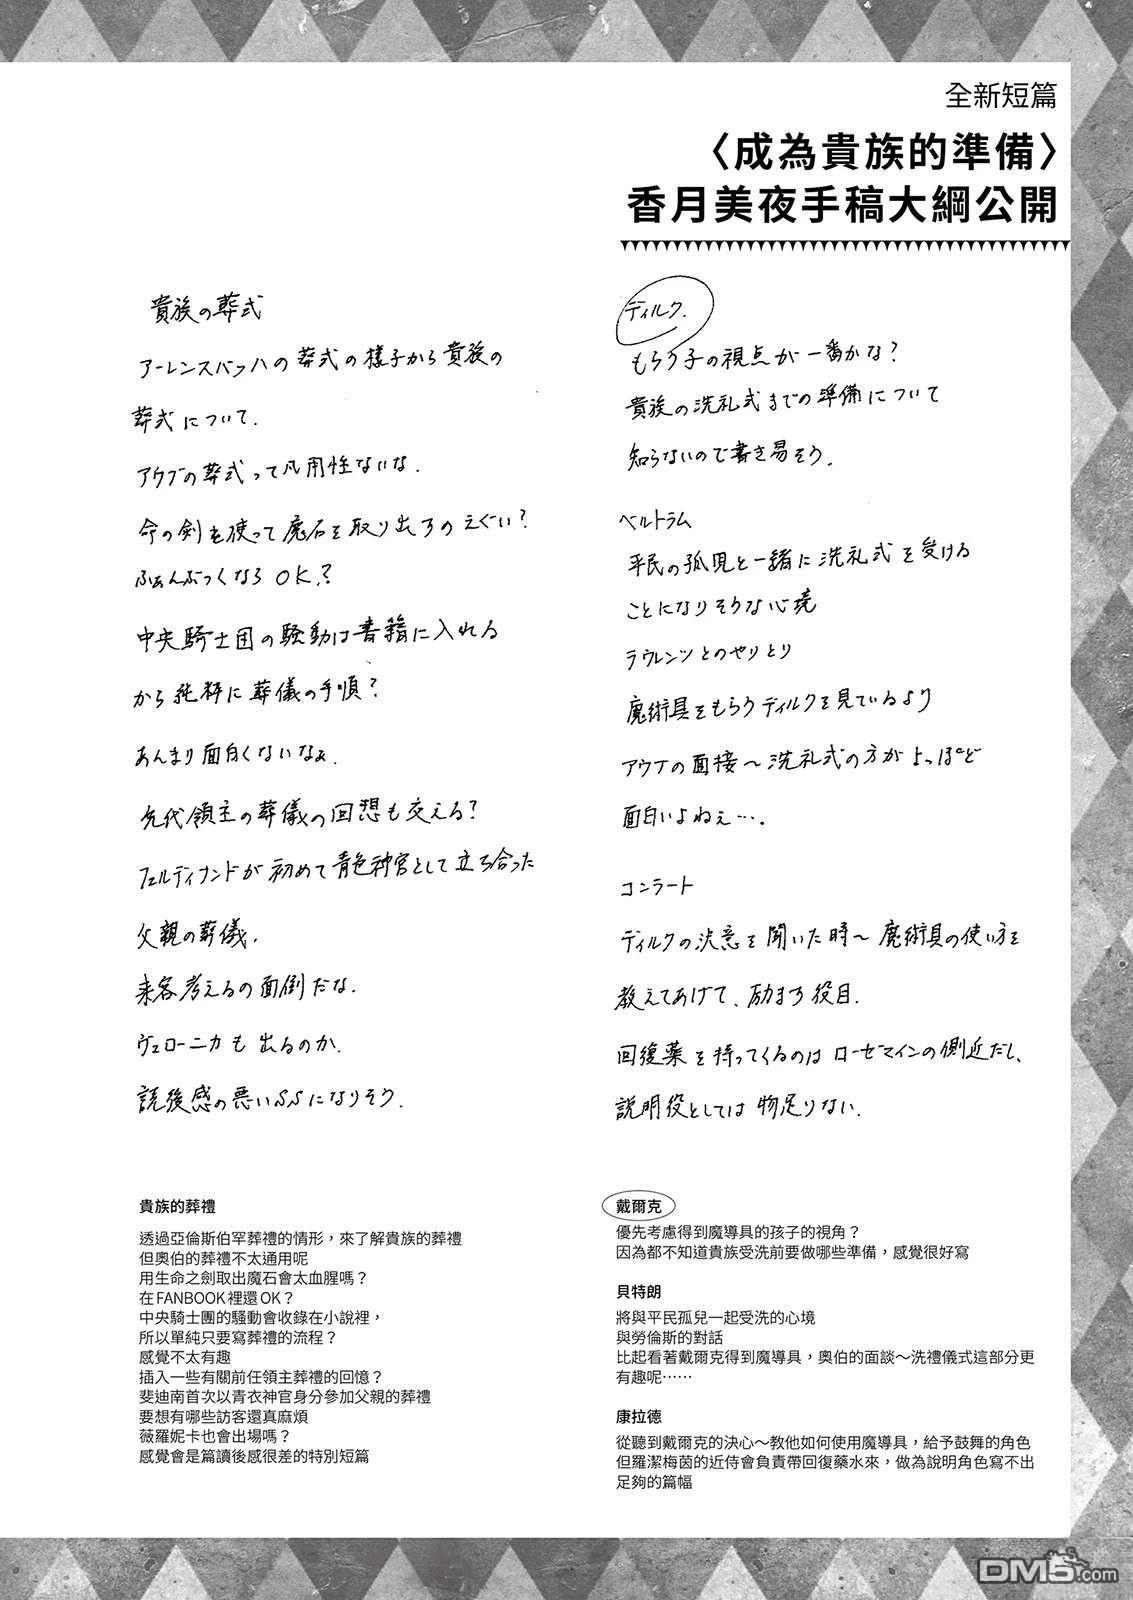 全新短篇
〈成為貴族的準備〉
香月美夜手稿大綱公開
ディルク.
もらう子の視点が一番かな?
貴族の洗礼式までの準備について
知らないので書き易そう.
ベルトラム
平民の孤児と一緒に洗礼式を受ける
ことになりそうな心境
ラウレンツとのやりとり
魔術具をもらうディルクを見ているより
アウブの面接〜洗礼式の方がよっぽど
面白いよねぇ….
コンラート
ディルクの決意を聞いた時〜魔術具の使い方を
教えてあげて、励ます役目.
回復薬を持ってくるのはローゼマインの側近だし、
説明役としては物足りない.
貴族の葬式
アーレンスバッハの葬式の様子から貴族の
葬式について.
アウブの葬式って汎用性ないな.
命の剣を使って魔石を取り出すのえぐい?
ふぁんぶっくならOK?
中央騎士団の騒動は書籍に入れる
から純粋に葬儀の手順?
あんまり面白くないなぁ.
先代領主の葬儀の回想も交える?
フェルディナンドが初めて青色神官として立ち合った
父親の葬儀.
来客考えるの面倒だな.
ヴェローニカも出るのか.
読後感の悪いSSになりそう.
戴爾克
優先考慮得到魔導具的孩子的視角?
因為都不知道貴族受洗前要做哪些準備,感覺很好寫
貝特朗
將與平民孤兒一起受洗的心境
與勞倫斯的對話
比起看著戴爾克得到魔導具,奧伯的面談～洗禮儀式這部分更
有趣呢……
康拉德
從聽到戴爾克的決心～教他如何使用魔導具,給予鼓舞的角色
但羅潔梅茵的近侍會負責帶回復藥水來,做為說明角色寫不出
足夠的篇幅
貴族的葬禮
透過亞倫斯伯罕葬禮的情形,來了解貴族的葬禮
但奧伯的葬禮不太通用呢
用生命之劍取出魔石會太血腥嗎?
在FANBOOK裡還OK?
中央騎士團的騷動會收錄在小說裡,
所以單純只要寫葬禮的流程?
感覺不太有趣
插入一些有關前任領主葬禮的回憶?
斐迪南首次以青衣神官身分參加父親的葬禮
要想有哪些訪客還真麻煩
薇羅妮卡也會出場嗎?
感覺會是篇讀後感很差的特別短篇
DM5.com